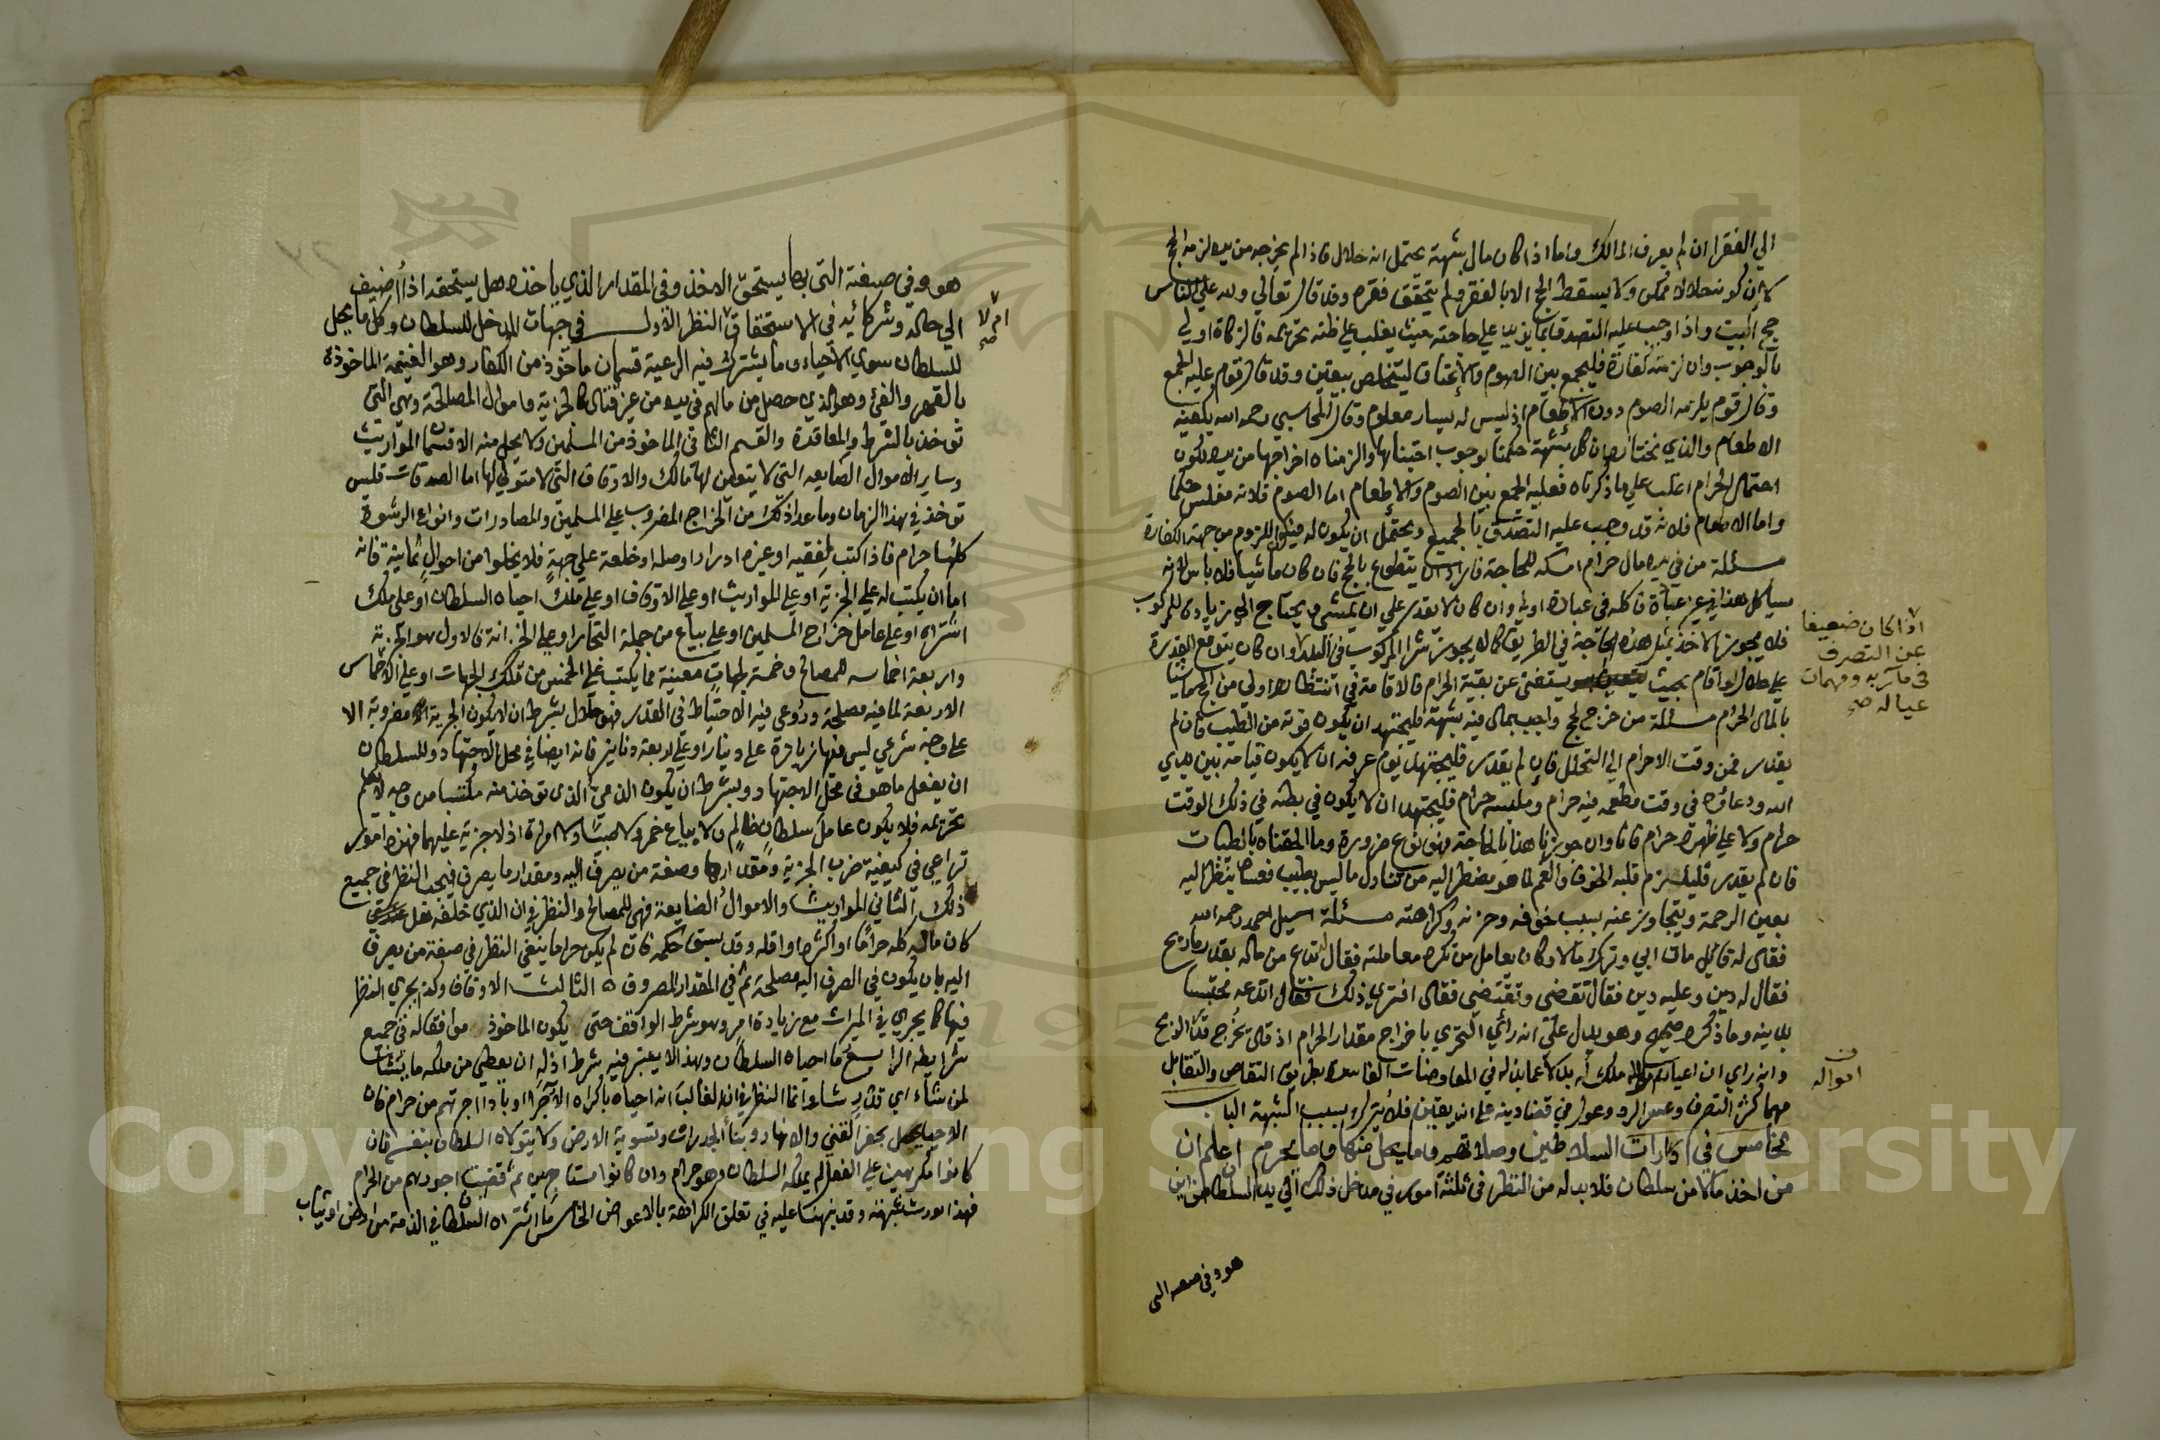 الي الفقرا ان لم يعرف المالك واما اذا كان مال شبهة يحتمل انه حلال فاذا لم يخرجه من يده لزمه الحج
لان كونه حلالا ممكن ولا يسقط الحج الا بالفقر ولم يتحقق فقره وقد قال تعالي ولله علي الناس
حج البيت واذا وجب عليه التصدق بما يزيد علي حاجته حيث يغلب علي ظنه تحريمه فالزكاة اولي
بالوجوب وان لزمته كفارة فليجمع بين الصوم والاعتاق ليتخلص بيقين وقد قال قوم عليه الجمع
وقال قوم يلزمه الصوم دون الاطعام اذ ليس له يسار معلوم وقال المحاسبي رحمه الله يكفيه
الاطعام والذي نختاره ان كل شبهة حكمنا بوجوب اجتنابها والزمناه اخراجها من يده لكون
احتمال الحرام اغلب علي ما ذكرناه فعليه الجمع بين الصوم والاطعام اما الصوم فلانه مفلس حكما
واما الاطعام فلانه قد وجب عليه التصدق بالجميع ويحتمل ان يكون له فيكون اللزوم من جهة الكفارة
مسئلة من في يده مال حرام امسكه للحاجة فاراد ان يتطوع بالحج فان كان ماشيا فلا باس لانه
سياكل هذا في غير عبادة فاكله في عبادة اولي وان كان لا يقدر علي ان يمشي ويحتاج الي زيادة للمركوب
فلا يجوز الاخذ بمثل هذه الحاجة في الطريق كما لا يجوز شرا المركوب في البلد وان كان يتوقع القدرة
علي حلال لو اقام بحيث يستغني عن بقية الحرام فالاقامة في انتظاره اولي من الحج ماشيا
بالمال الحرام مسئلة من خرج لحج واجب بمال فيه شبهة فليجتهد ان يكون قوته من الطيب فان لم
يقدر فمن وقت الاحرام الي التحلل فان لم يقدر فليجتهد يوم عرفة ان لا يكون قيامه بين يدي
الله ودعاؤه في وقت مطعمه فيه حرام وملبسه حرام فليجتهد ان لا يكون في بطنه في ذلك الوقت
حرام ولا علي ظهره حرام فانا وان جوزنا هذا بالحاجة فهو نوع ضرورة وما الحقناه بالطيبات
فان لم يقدر فليلزم قلبه الخوف والغم لما هو مضطر اليه من تناول ما ليس بطيب فعساه ينظر اليه
بعين الرحمة ويتجاوز عنه بسبب خوفه وحزنه وكراهته مسئلة سيل احمد رحمه الله
فقال له قائل مات ابي وترك مالا وكان يعامل من تكره معاملته فقال تدع من ماله بقدر ما ربح
فقال له دين وعليه دين فقال تقضي وتقتضي فقال افتري ذلك فقال اتدعه محتبسا
بدينه وما ذكره صحيح وهو يدل علي انه رائي التحري باخراج مقدار الحرام اذ قال يخرج قدر الربح
وانه راي ان اعيان ملك له بدلا عما بذله في المعاوضات الفاسدة بطريق التقاص والتقابل
مهما كثر التصرف وعسر الرد وعول في قضا دينه علي انه يقين فلا يترك بسبب الشبهة الباب
الخامس في ادرارات السلاطين وصلاتهم وما يحل منها وما يحرم اعلم ان
من اخذ مالا من سلطان فلا بد له من النظر في ثلثة امور في مدخل ذلك الي يد السلطان من اين
هو وفي صفته التي
اذا كان ضعيفا
عن التصرف
في مآربه ومهمات
عياله صح
امواله
هو وفي صفته التي بها يستحق الاخذ وفي المقدار الذي ياخذه هل يستحقه اذا اضيف
الي حاله وشركائه في الاستحقاق النظر الاول في جهات الدخل للسلطان وكل ما يحل
للسلطان سوي الاحياء وما يشترك فيه الرعية قسمان ماخوذ من الكفار وهو الغنيمة الماخوذة
بالقهر والفئ وهو الذي حصل من مالهم في يده من غير قتال كالجزية واموال المصالحة وهي التي
توخذ بالشرط والمعاقدة والقسم الثاني الماخوذ من المسلمين ولا يحل منه الا قسمان المواريث
وساير الاموال الضايعه التي لا يتعين لها مالك والاوقاف التي لا متولي لها اما الصدقات فليس
توخذ في هذا الزمان وما عدا ذلك من الخراج المضروب علي المسلمين والمصادرات وانواع الرشوة
كلها حرام فاذا كتب لفقيه او غيره ادرارا وصلة او خلعة علي جهة فلا يخلوا من احوال ثمانية فانه
اما ان يكتب له علي الجزية او علي المواريث او علي الاوقاف او علي ملك احياه السلطان او علي ملك
اشتراه او علي عامل خراج المسلمين او علي بياع من جملة التجار او علي الخزانة فالاول هو الجزية
واربعة اخماسه للمصالح وخمسه لجهات معينة فما يكتب علي الخمس من تلك الجهات او علي الاخماس
الاربعة لما فيه مصلحة وروعي فيه الاحتياط في القدر فهو حلال بشرط ان لا يكون الجزية الا مضروبة الا
علي وجه شرعي ليس فيها زيادة علي دينار او علي اربعة دنانير فانه ايضا في محل الاجتهاد وللسلطان
ان يفعل ما هو في محل الاجتهاد وبشرط ان يكون الذمي الذي توخذ منه مكتسبا من وجه لا يعلم
تحريمه فلا يكون عامل سلطان ظالم ولا بياع خمر ولا صبيا ولا امراة اذ لا جزية عليهما فهذه امور
تراعي في كيفية ضرب الجزية ومقدارها وصفة من يصرف اليه ومقدار ما يصرف فيجب النظر في جميع
ذلك الثاني المواريث والاموال الضايعة فهي للمصالح والنظر في ان الذي خلفه هل
كان ماله كله حراما او اكثره او اقله وقد سبق حكمه فان لم يكن حراما بقي النظر في صفة من يصرف
اليه بان يكون في الصرف اليه مصلحة ثم في المقدار المصروف الثالث الاوقاف وكذا يجري النظر
فيها كما يجري في الميراث مع زيادة امر وهو شرط الواقف حتي يكون الماخوذ موافقا له في جميع
شرايطه الرابع ما احياه السلطان وهذا لا يعتبر فيه شرط اذ له ان يعطي من ملكه ما يشاء
لمن شاء اي قدر شاء وانما النظر في ان الغالب انه احياه باكراه الاجرا او بادا اجرتهم من حرام فان
الاحيا يحصل بحفر القني والانهار وبنا الجدرات وتسوية الارض ولا يتولاه السلطان بنفسه فان
كانوا مكرهين علي الفعل لم يملكه السلطان وهو حرام وان كانوا مستاجرين ثم قضيت اجورهم من الحرام
فهذا يورث شبهة وقد نبهنا عليه في تعلق الكراهة بالاعواض الخامس ما اشتراه السلطان في الذمة من ارض او ثياب